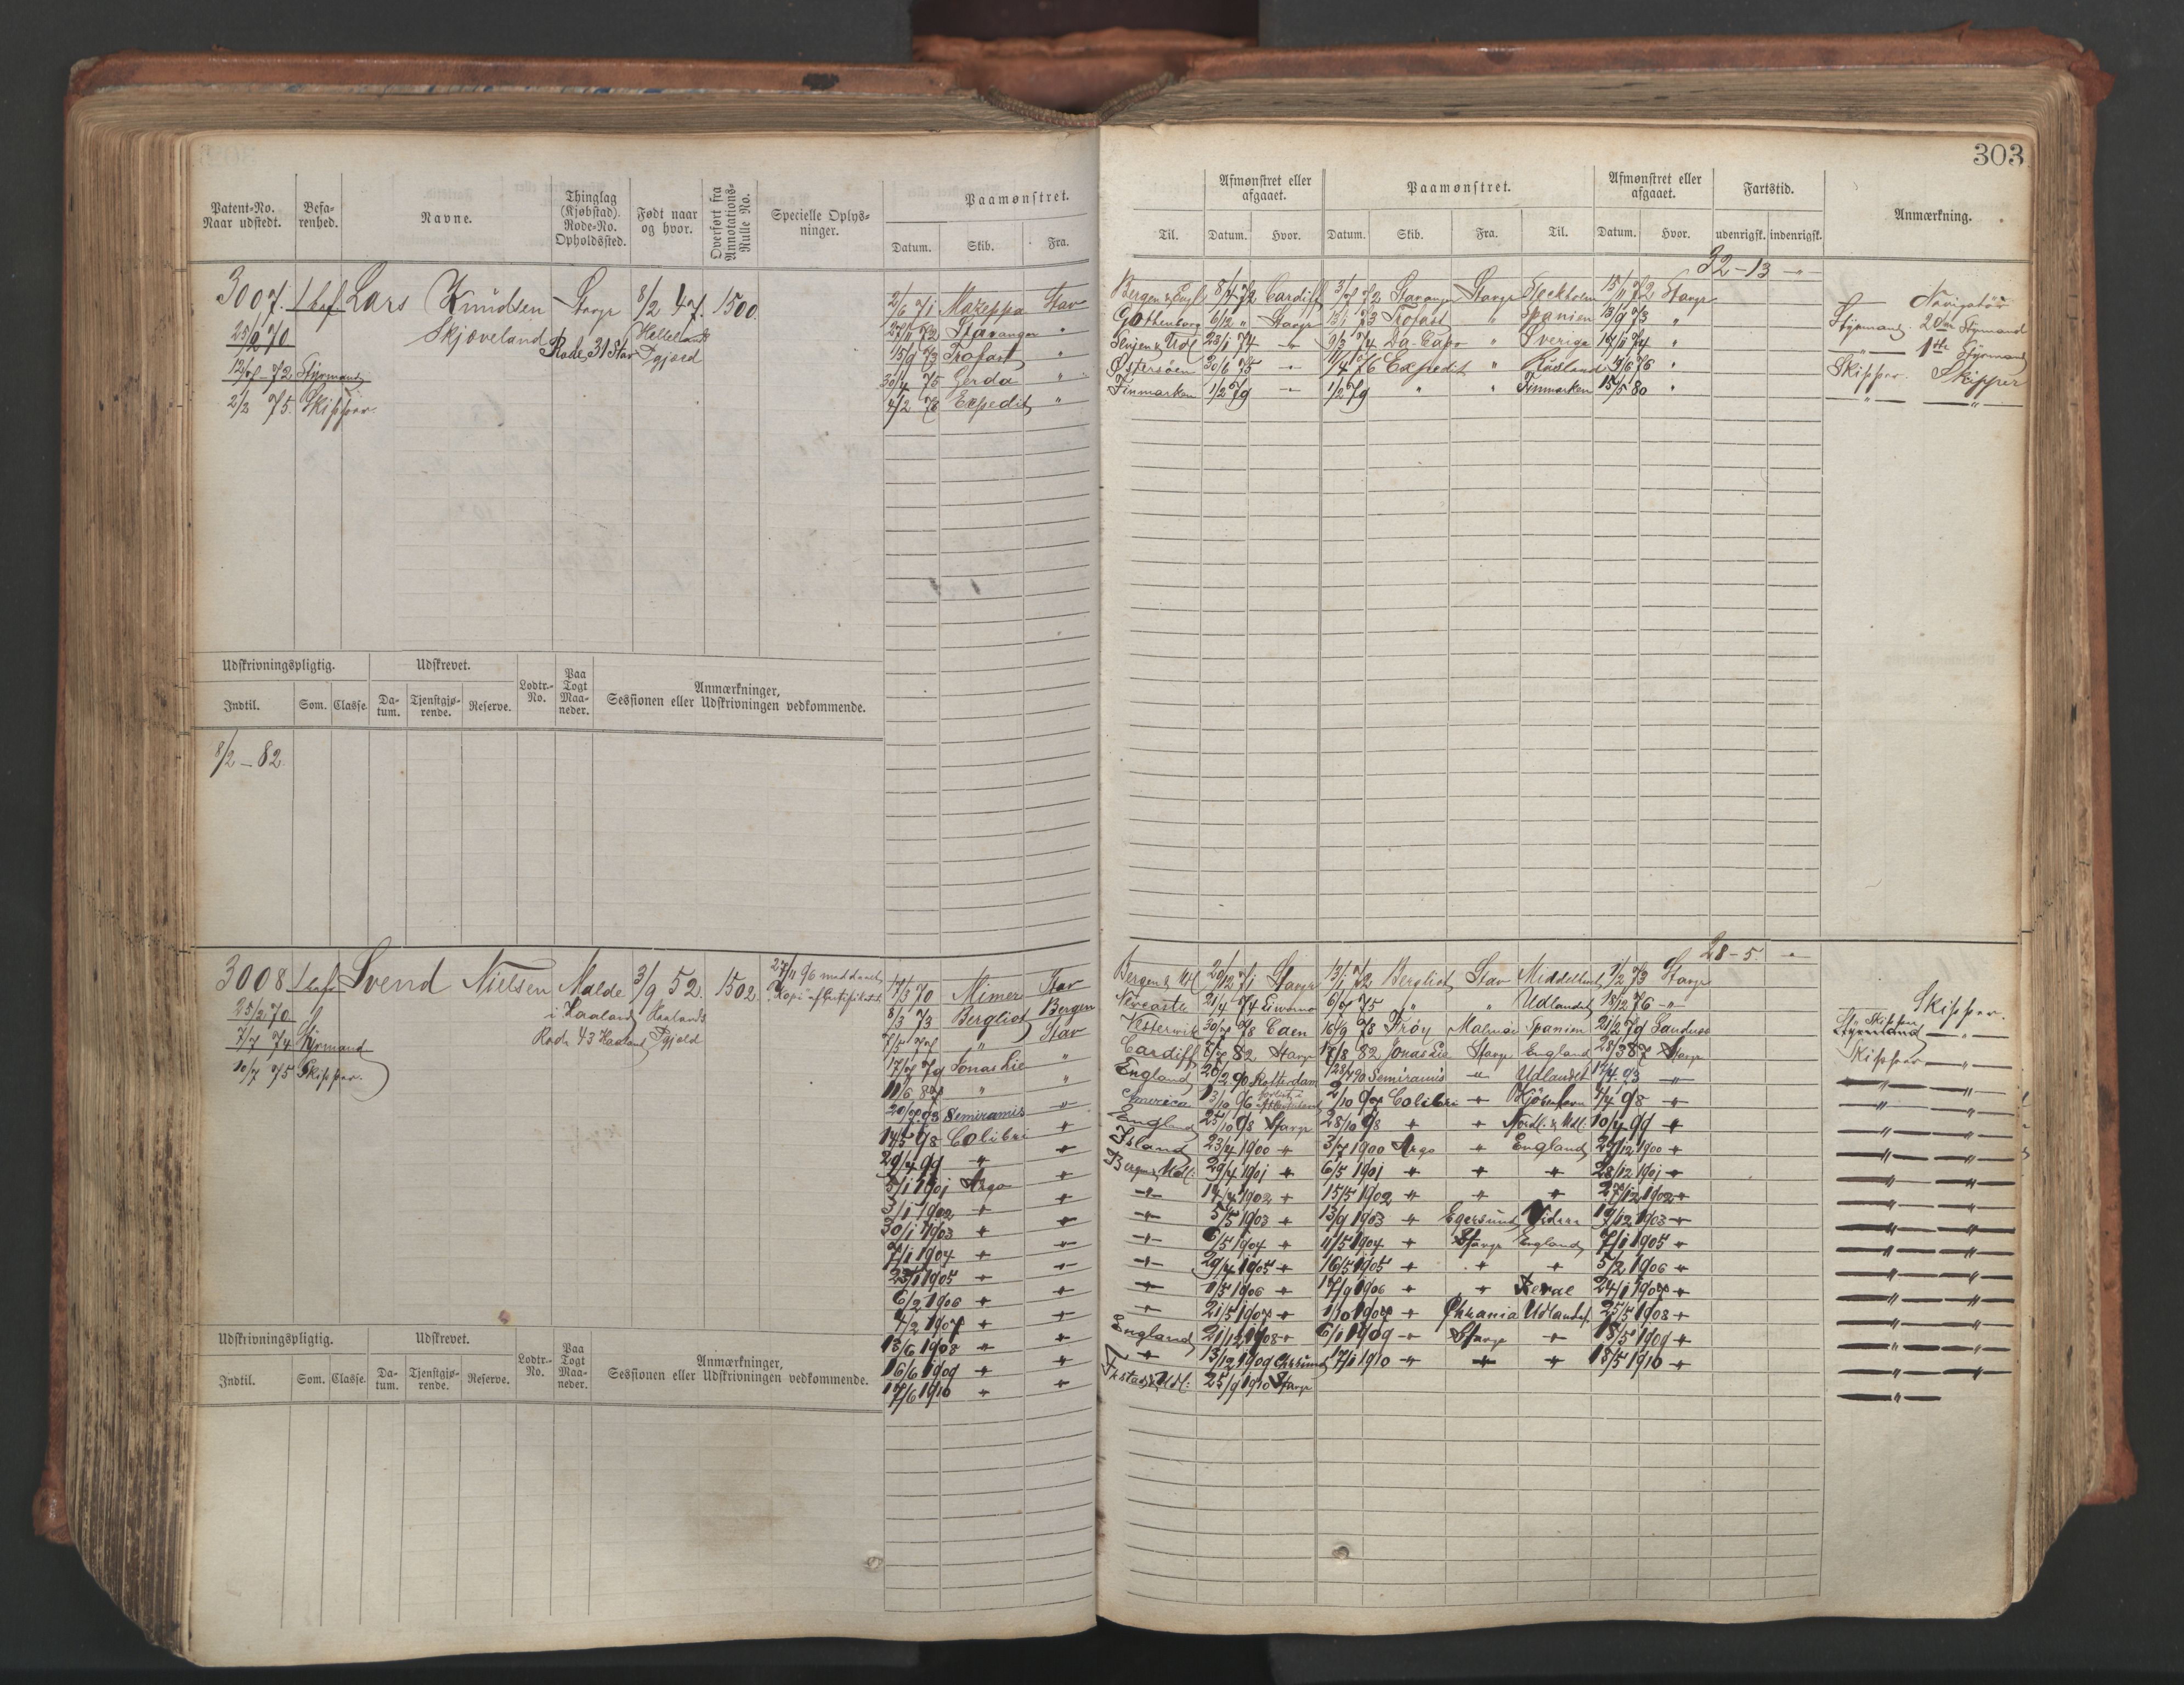 303
Patent-No. Naar udstedt.
Befarenhed.
Navne.
Thinglag (Kjøbstad). Rode-No. Opholdssted.
Født naar og hvor.
Overført fra Annotations-Rulle No.
Specielle Oplysninger.
Paamønstret.
Datum. Skib. Fra.
Til.
Afmønstret eller afgaaet.
Datum. Hvor.
Paamønstret.
Datum. Skib. Fra. Til.
Afmønstret eller afgaaet.
Datum. Hvor.
Fartstid.
udenrigsk. indenrigsk.
Anmærkning.
3007. 1 bef Lars Knudsen Stavgr 8/2 47. 1500.
Skjæveland Rode 31 Stav Helleland Pgjæld
25/2 70
12/7 - 72 Styrmand
2/2 75. Skipper.
32-13 - " -
2/6 71 Mazeppa Stav Bergen & Engl 8/4 72 Cardiff 3/7 72 Stavanger Stavgr Stockholm 15/11 72 Stavgr
27/11 72 Stavanger " Gothenborg 6/12 " Stavgr 13/1 73 Trofast " Spanien 13/9 73 "
15/9 73 Trofast " 23/1 74 - " - 9/3 74 Da-Capo " Sverige 17/11 74 "
30/4 75 Gerda " Østersöen 30/6 75 - " - 11/4 76 Expedit " Rusland 4/6 76 "
4/2 78 Expedit " Finmarken 1/2 79 - " - 1/2 79 " " Finmarken 15/5 80 "
Navigatör
Styrmand. 2den Styrmand
- " - 1ste Styrmand
Skipper. Skipper
- " - - " -
Udskrivningspligtig.
Udskrevet.
Indtil. Som. Classe. Datum. Tjenstgjørende. Reserve. Lodtr.-No. Paa Togt Maaneder.
Anmærkninger, Sessionen eller Udskrivningen vedkommende.
8/2 - 82.
3008 1 bef Svend Nielsen Malde 3/9 52. 1502.
i Haaland Haalands
Rode 43 Haaland Pgjæld
27/11 96 meddeelt
Kopi af Certifikatet
25/2 70
7/7 74 Styrmand
10/7 75 Skipper.
28-5. - " -
17/3 70 Mimer Stav Bergen & Udl 20/12 71 Stavgr 13/1 72 Bergliot Stav Middelhavet 1/2 73 Stavgr
8/3 73 Bergliot Bergen Newcastle 21/4 74 Livorno 6/7 75 " " Udlandet 18/12 76 - " -
7/5 77 " Stav Vesterwik 30/7 78 Caen 16/9 78 Fröy Malmöe Spanien 21/2 79
17/7 79 Jonas Lie " Cardiff 8/7 82 Stavgr 17/8 82 Jonas Lie Stavgr England 28/3 87 Stavgr
11/6 87 " " England 20/2 90 Rotterdam Semiramis - " - Udlandet 17/4 93 - " -
20/7 93 Semiramis - " - America 13/10 96 2/10 97 Colibri + Kjöbenhavn 4/4 98 +
14/5 98 Colibri + England 25/10 98 Stavgr 28/10 98 + + Nordl: & Udl: 10/4 99 +
29/4 99 " + Island 23/4 1900 " 3/7 1900 Argo " England 29/12 1900 +
5/1 1901 Argo + Bergen & Udl: 29/4 1901 + 6/5 1901 + + + 28/12 1901 +
3/1 1902 + + - " - 14/4 1902 + 15/5 1902 " " + 27/12 1902 +
30/1 1903 + + - " - 5/5 1903 + 13/9 1903 " Egersund 19/12 1903 +
7/1 1904 + " - " - 6/5 1904 + 11/5 1904 + Stavgr England 7/1 1905 +
23/1 1905 + - " - 29/4 1905 + 16/5 1905 + + + 5/2 1906 +
6/2 1906 + + 1/5 1906 + 17/9 1906 + " Reval 24/1 1907 +
4/2 1907 + + 21/5 1907 + 1/10 1907 + Chrania Udlandet. 25/5 1908 +
13/6 1908 " + England 21/12 1908 + 6/1 1909 " Stavgr + 18/5 1909 +
16/6 1909 + + + 13/12 1909 Chrsund 17/1 1910 " + + 18/5 1910 +
17/6 1910 + + Udl: 25/9 1910 Stavgr
Skipper.
Skipper
Styrmand - " -
Skipper - " -
Udskrivningspligtig.
Udskrevet.
Indtil. Som. Classe. Datum. Tjenstgjørende. Reserve. Lodtr.-No. Paa Togt Maaneder.
Anmærkninger, Sessionen eller Udskrivningen vedkommende.